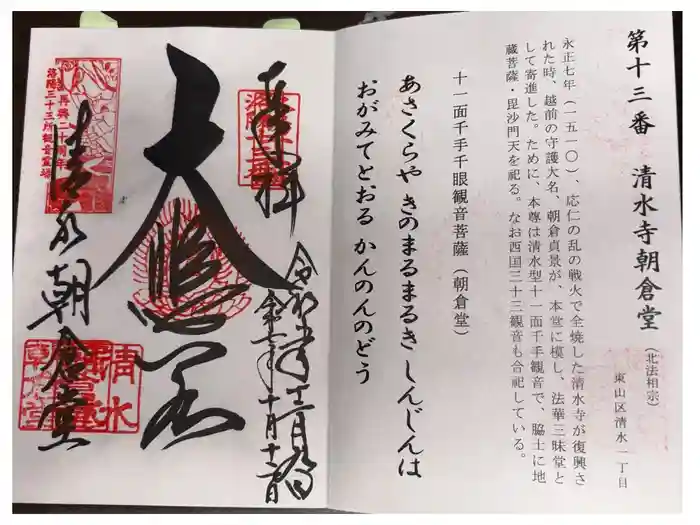 第十三番 清水寺朝倉堂(北法相宗)
東山区清水一丁目
永正七年(一五一〇)、応仁の乱の戦火で全焼した清水寺が復興さ
れた時、越前の守護大名、朝倉貞景が、本堂に模し、法華三昧堂と
して寄進した。ために、本尊は清水型十一面千手観音で、脇士に地
蔵菩薩・毘沙門天を祀る。なお西国三十三観音も合祀している。
十一面千手千眼観音菩薩(朝倉堂)
あさくらや きのまるまるき しんじんは
おがみてとおる かんのんのどう
奉拝
洛陽十三番
大悲閣
再興二十周年
洛陽三十三所観音霊場
清水 朝倉堂
清水